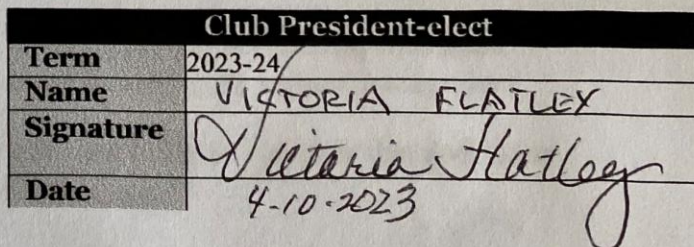 Club President-elect
Term 2023-24
Name VICTORIA FLATLEY
Signature Victoria Flatley
Date 4-10-2023